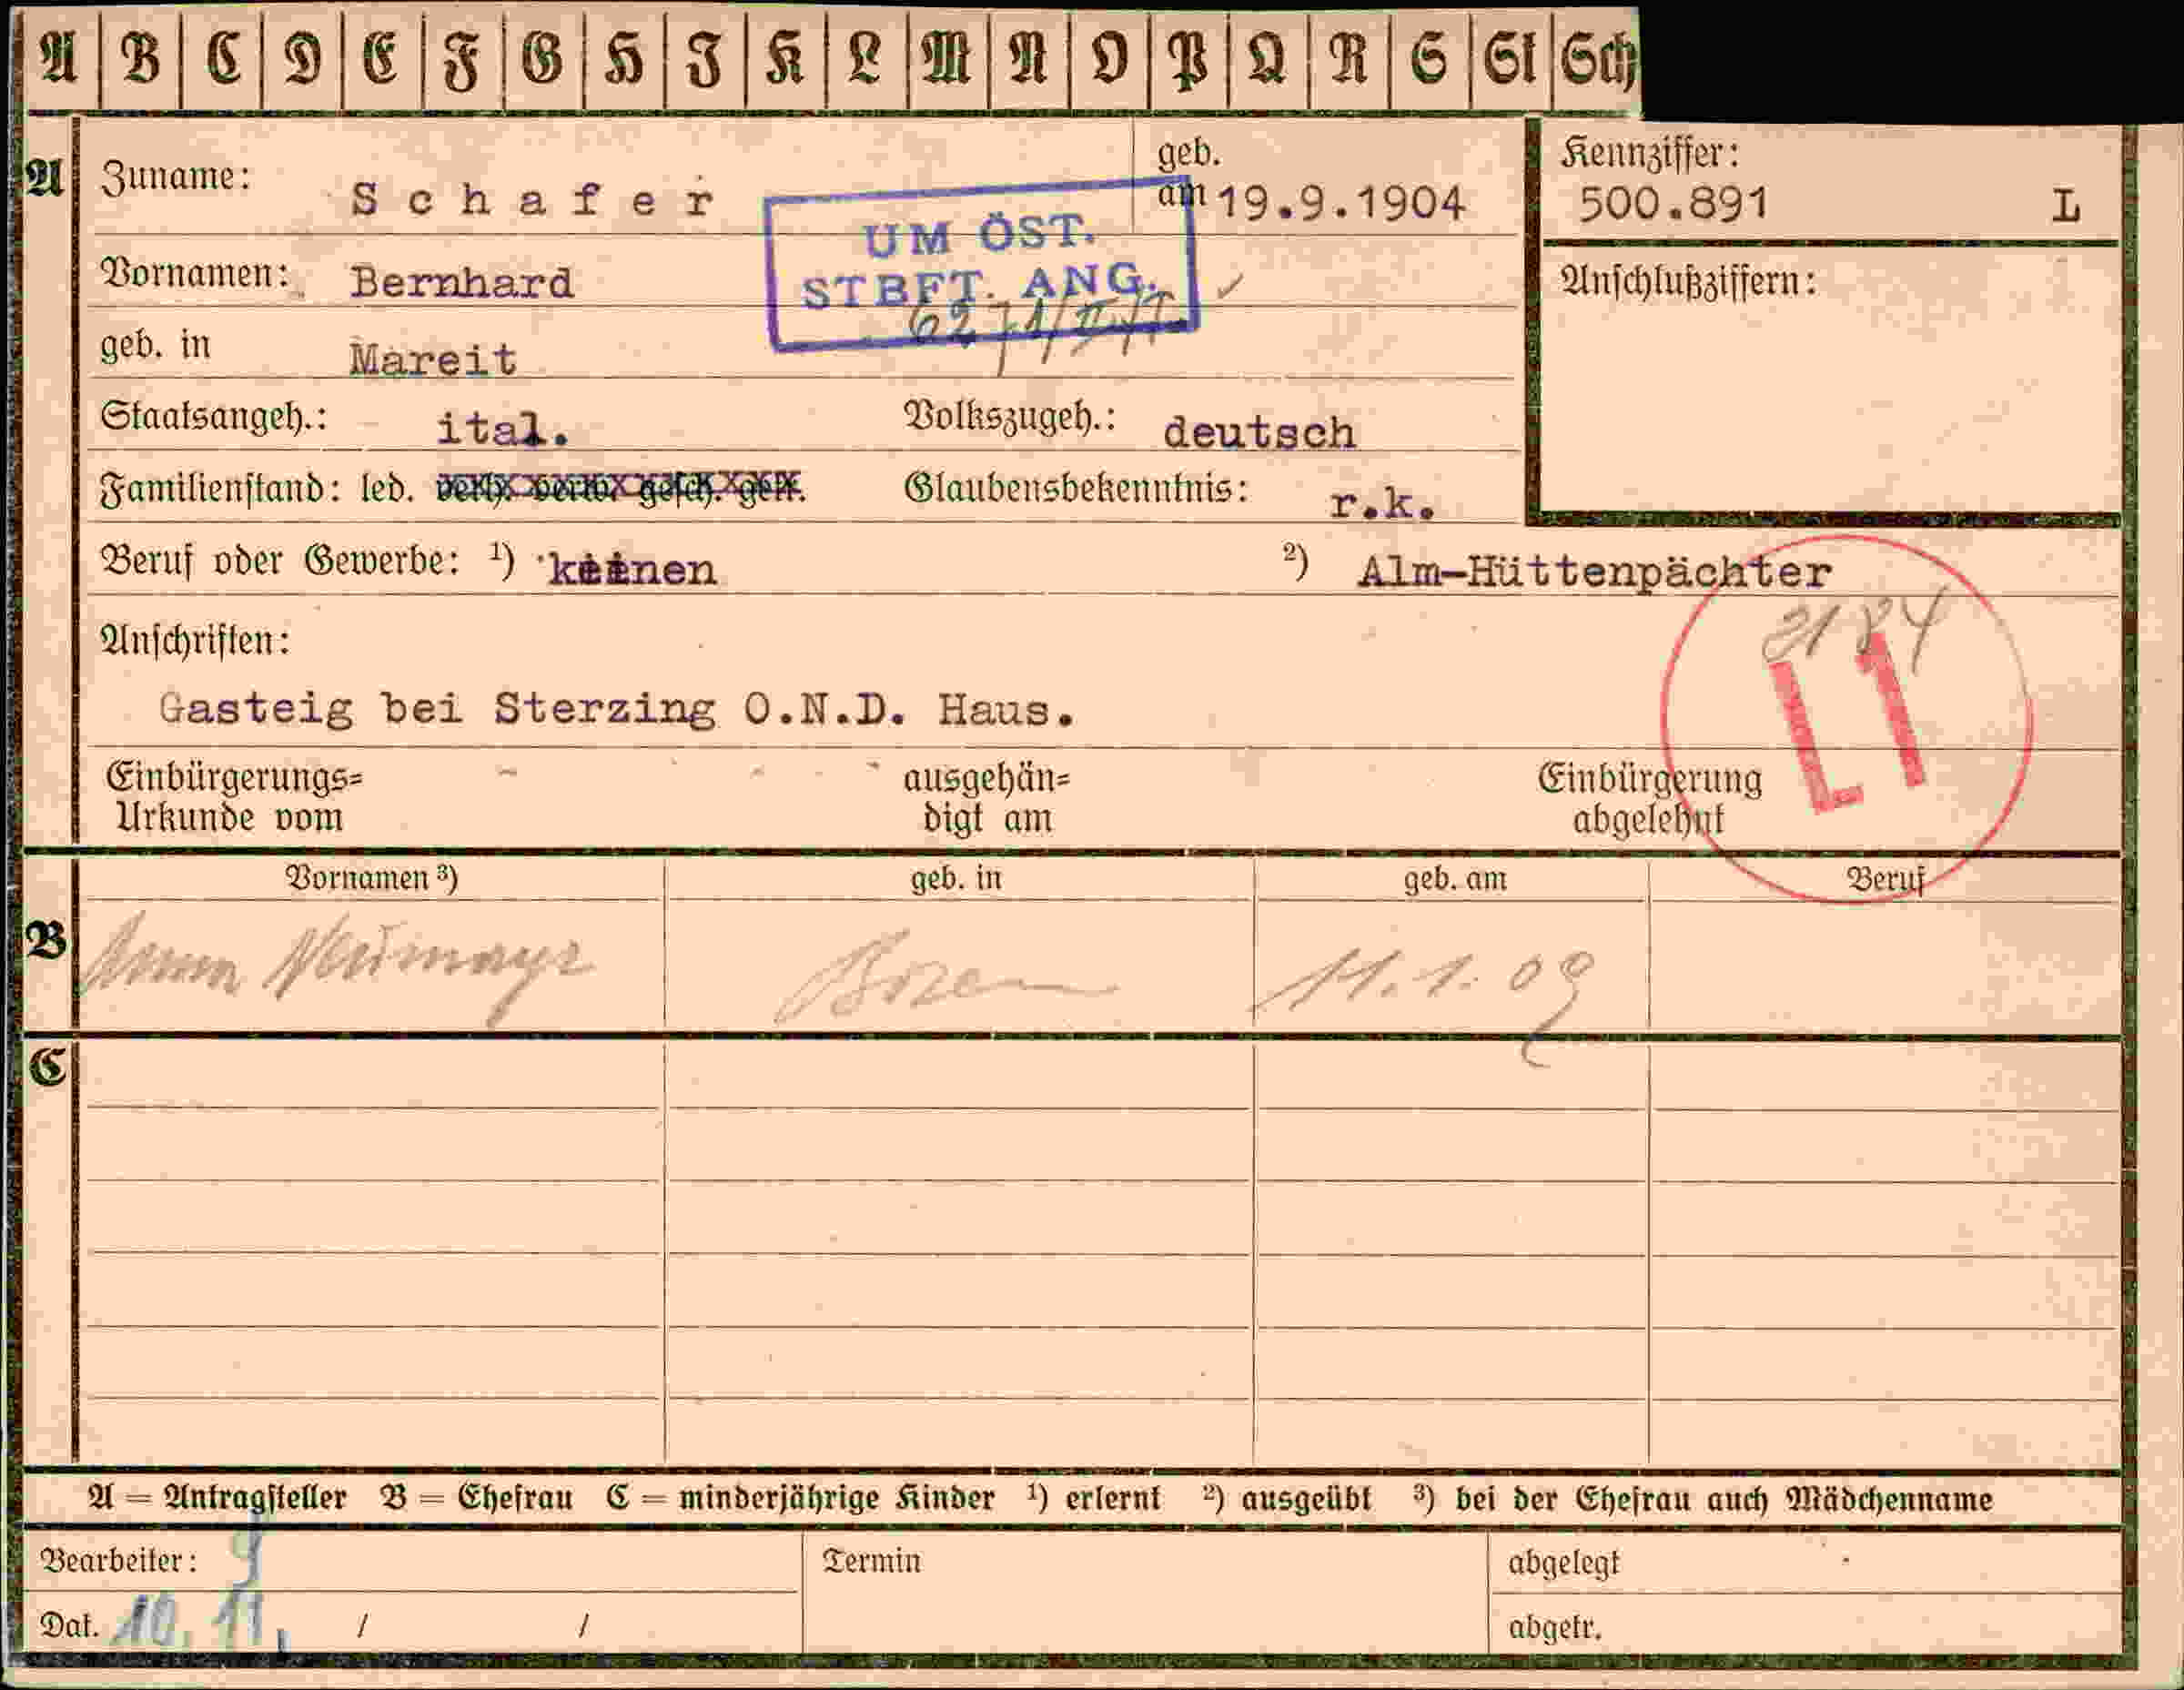 A B C D E F G H I K L M N O P Q R S St Sch
A
Zuname: Schafer
geb. am 19.9.1904
Kennziffer:
500.891 L
UM ÖST.
STBFT. ANG.
Vornamen: Bernhard
Anschlußziffern:
geb. in Mareit
Staatsangeh.: ital. Volkszugeh.: deutsch
Familienstand: led. verh. verw. gesch. getr. Glaubensbekenntnis: r.k.
Beruf oder Gewerbe: ¹) keinen ²) Alm-Hüttenpächter
Anschriften:
2184
L1
Gasteig bei Sterzing O.N.D. Haus.
Einbürgerungs= ausgehän= Einbürgerung
Urkunde vom digt am abgelehnt
Vornamen ³) geb. in geb. am Beruf
B Anna Neumayr Bozen 11.1.09
C
A = Antragsteller B = Ehefrau C = minderjährige Kinder ¹) erlernt ²) ausgeübt ³) bei der Ehefrau auch Mädchenname
Bearbeiter: Termin abgelegt
Dat. 10. 11. / / abgetr.